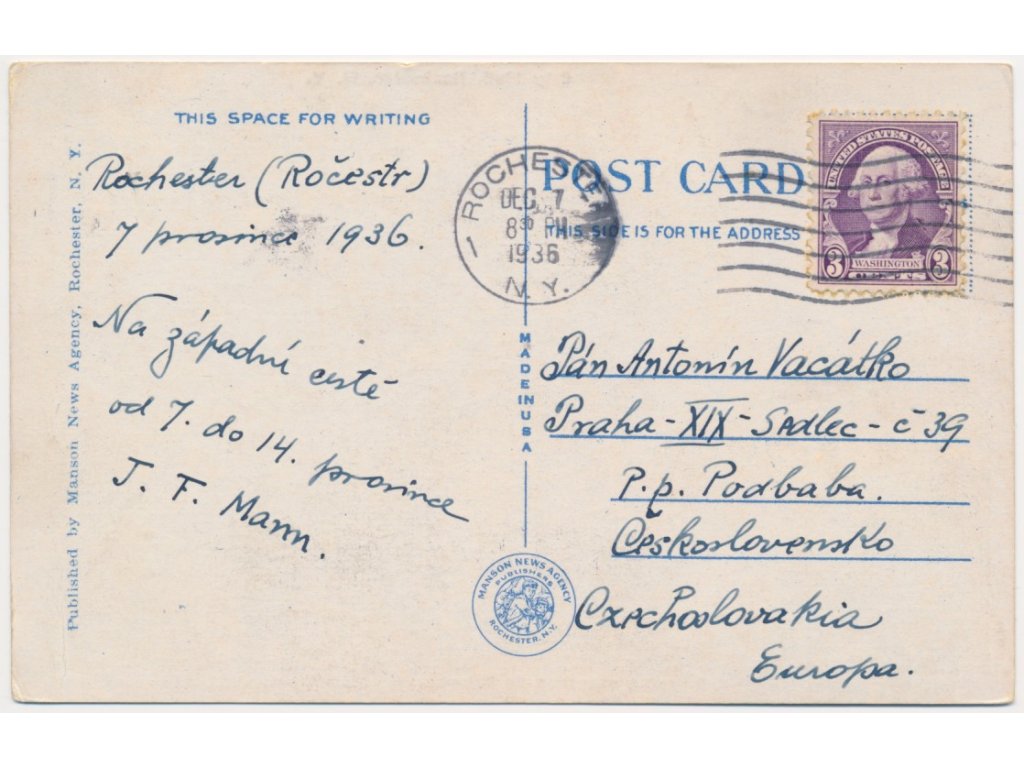 THIS SPACE FOR WRITING
Rochester (Ročestr)
7 prosince 1936.
Na západní cestě
od 7. do 14. prosince
J. F. Mann.
Published by Manson News Agency, Rochester, N. Y.
ROCHESTER
DEC 7
8 30 PM
1936
N. Y.
POST CARD
THIS SIDE IS FOR THE ADDRESS
UNITED STATES POSTAGE
WASHINGTON
3 CENTS 3
MADE IN USA
Pán Antonín Vacátko
Praha - XIX - Sadlec - č 39
P. p. Podbaba.
Československo
Czechoslovakia
Europa.
MANSON NEWS AGENCY
PUBLISHERS
ROCHESTER, N.Y.